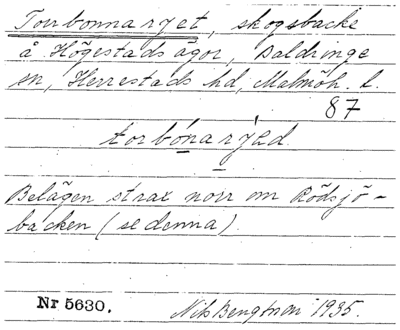 Torrbonnaryet, skogsbacke
å Högestads ägor, Baldringe
sn, Herrestads hd, Malmöh. l.
87
torbónarýed
Belägen strax norr om Rödsjö-
backen (se denna).
Nr 5630. Nils Bengtson 1935.